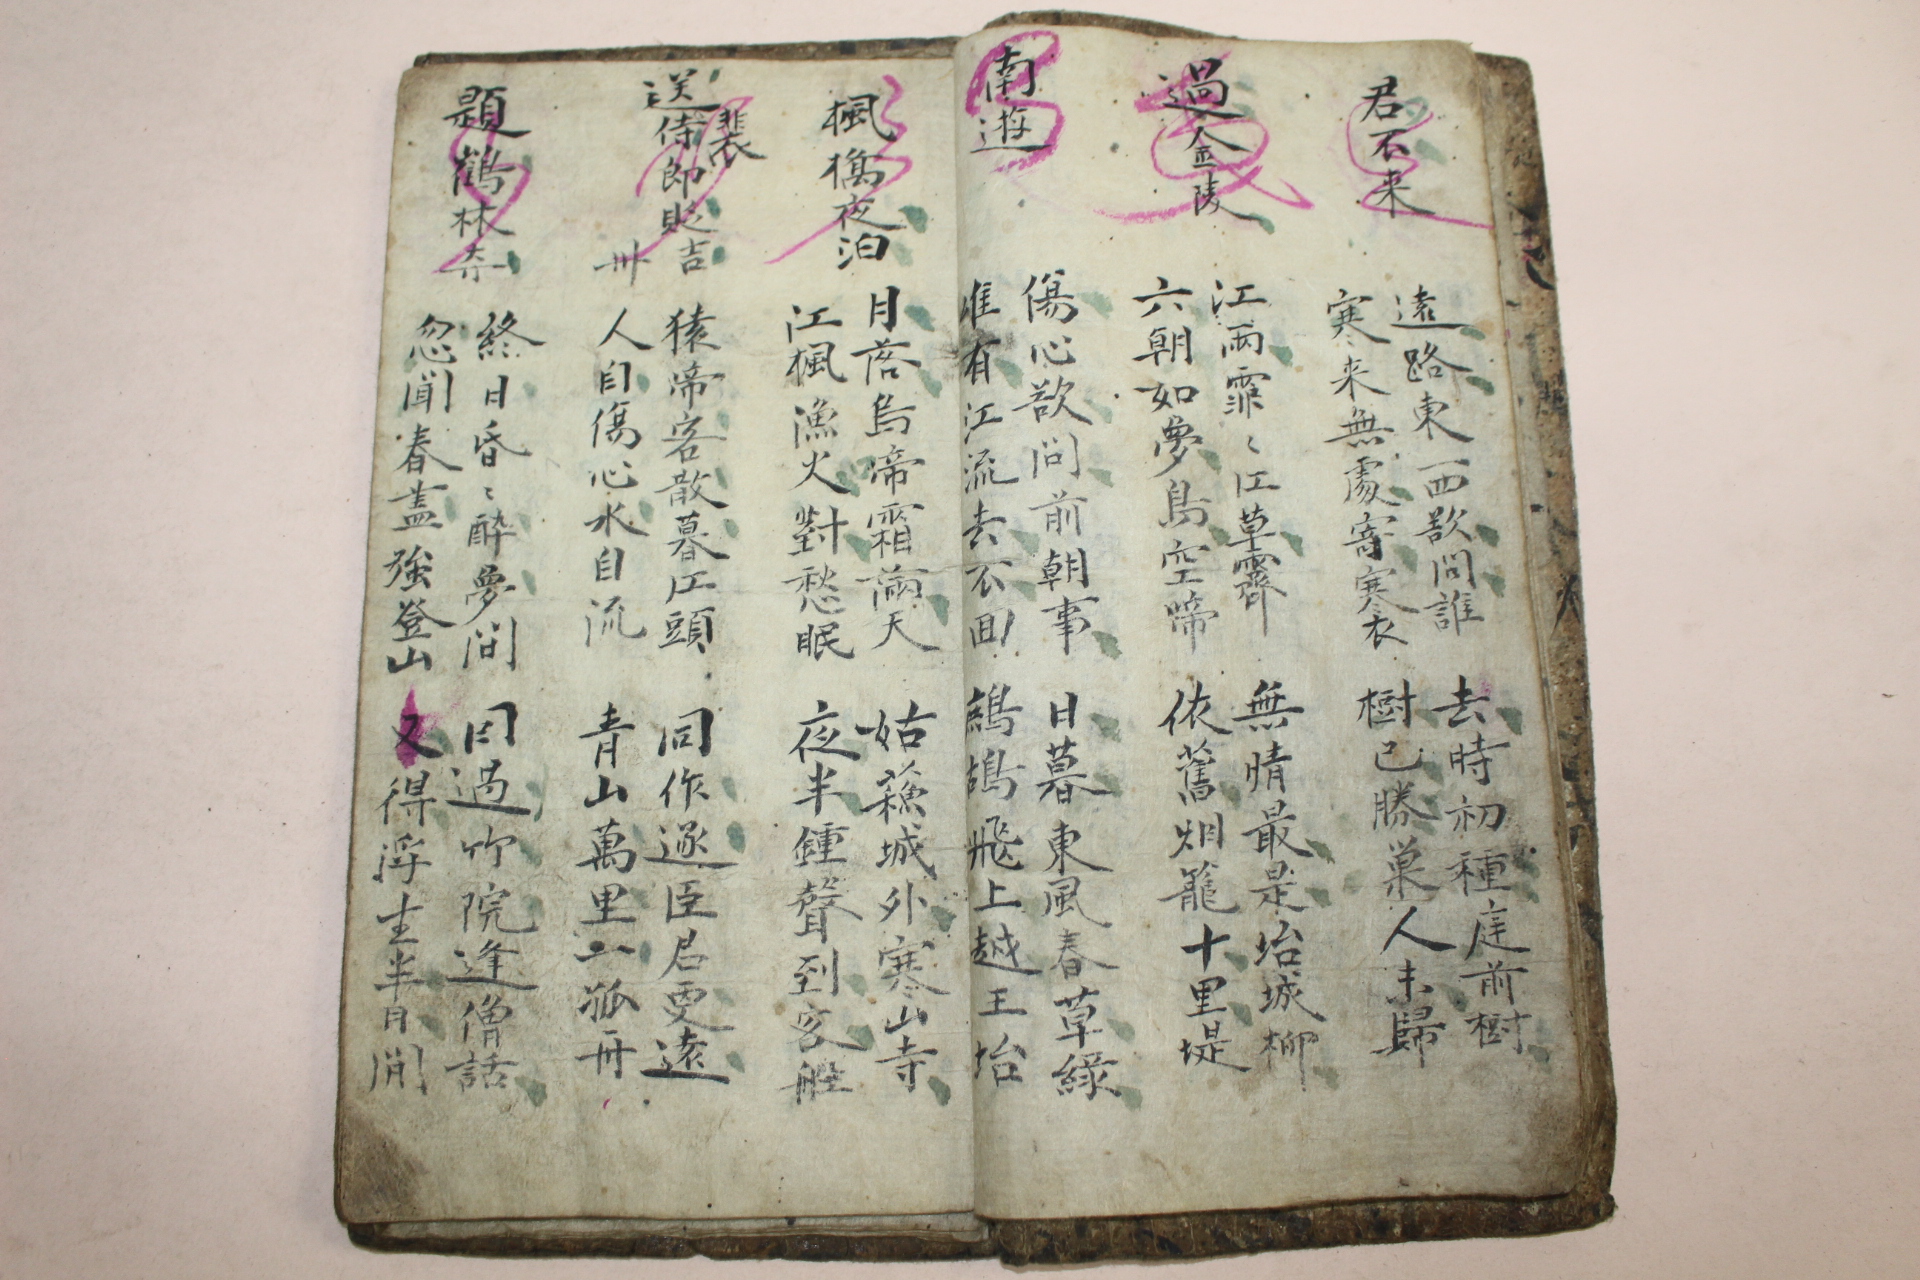 君不来
遠路東西欲問誰
寒来無處寄寒衣
去時初種庭前樹
樹已勝巢人未歸
過金陵
江雨霏〻江草齊
六朝如夢鳥空啼
無情最是坮城柳
依舊烟籠十里堤
南遊
傷心欲問前朝事
惟有江流去不回
日暮東風春草綠
鷓鴣飛上越王坮
楓橋夜泊
月落烏啼霜滿天
江楓漁火對愁眠
姑蘓城外寒山寺
夜半鍾聲到客船
送裴侍郎貶吉州
猿啼客散暮江頭
人自傷心水自流
同作逐臣君更遠
青山萬里一孤舟
題鶴林寺
終日昏〻醉夢間
忽聞春盡強登山
因過竹院逢僧話
又得浮生半日閑